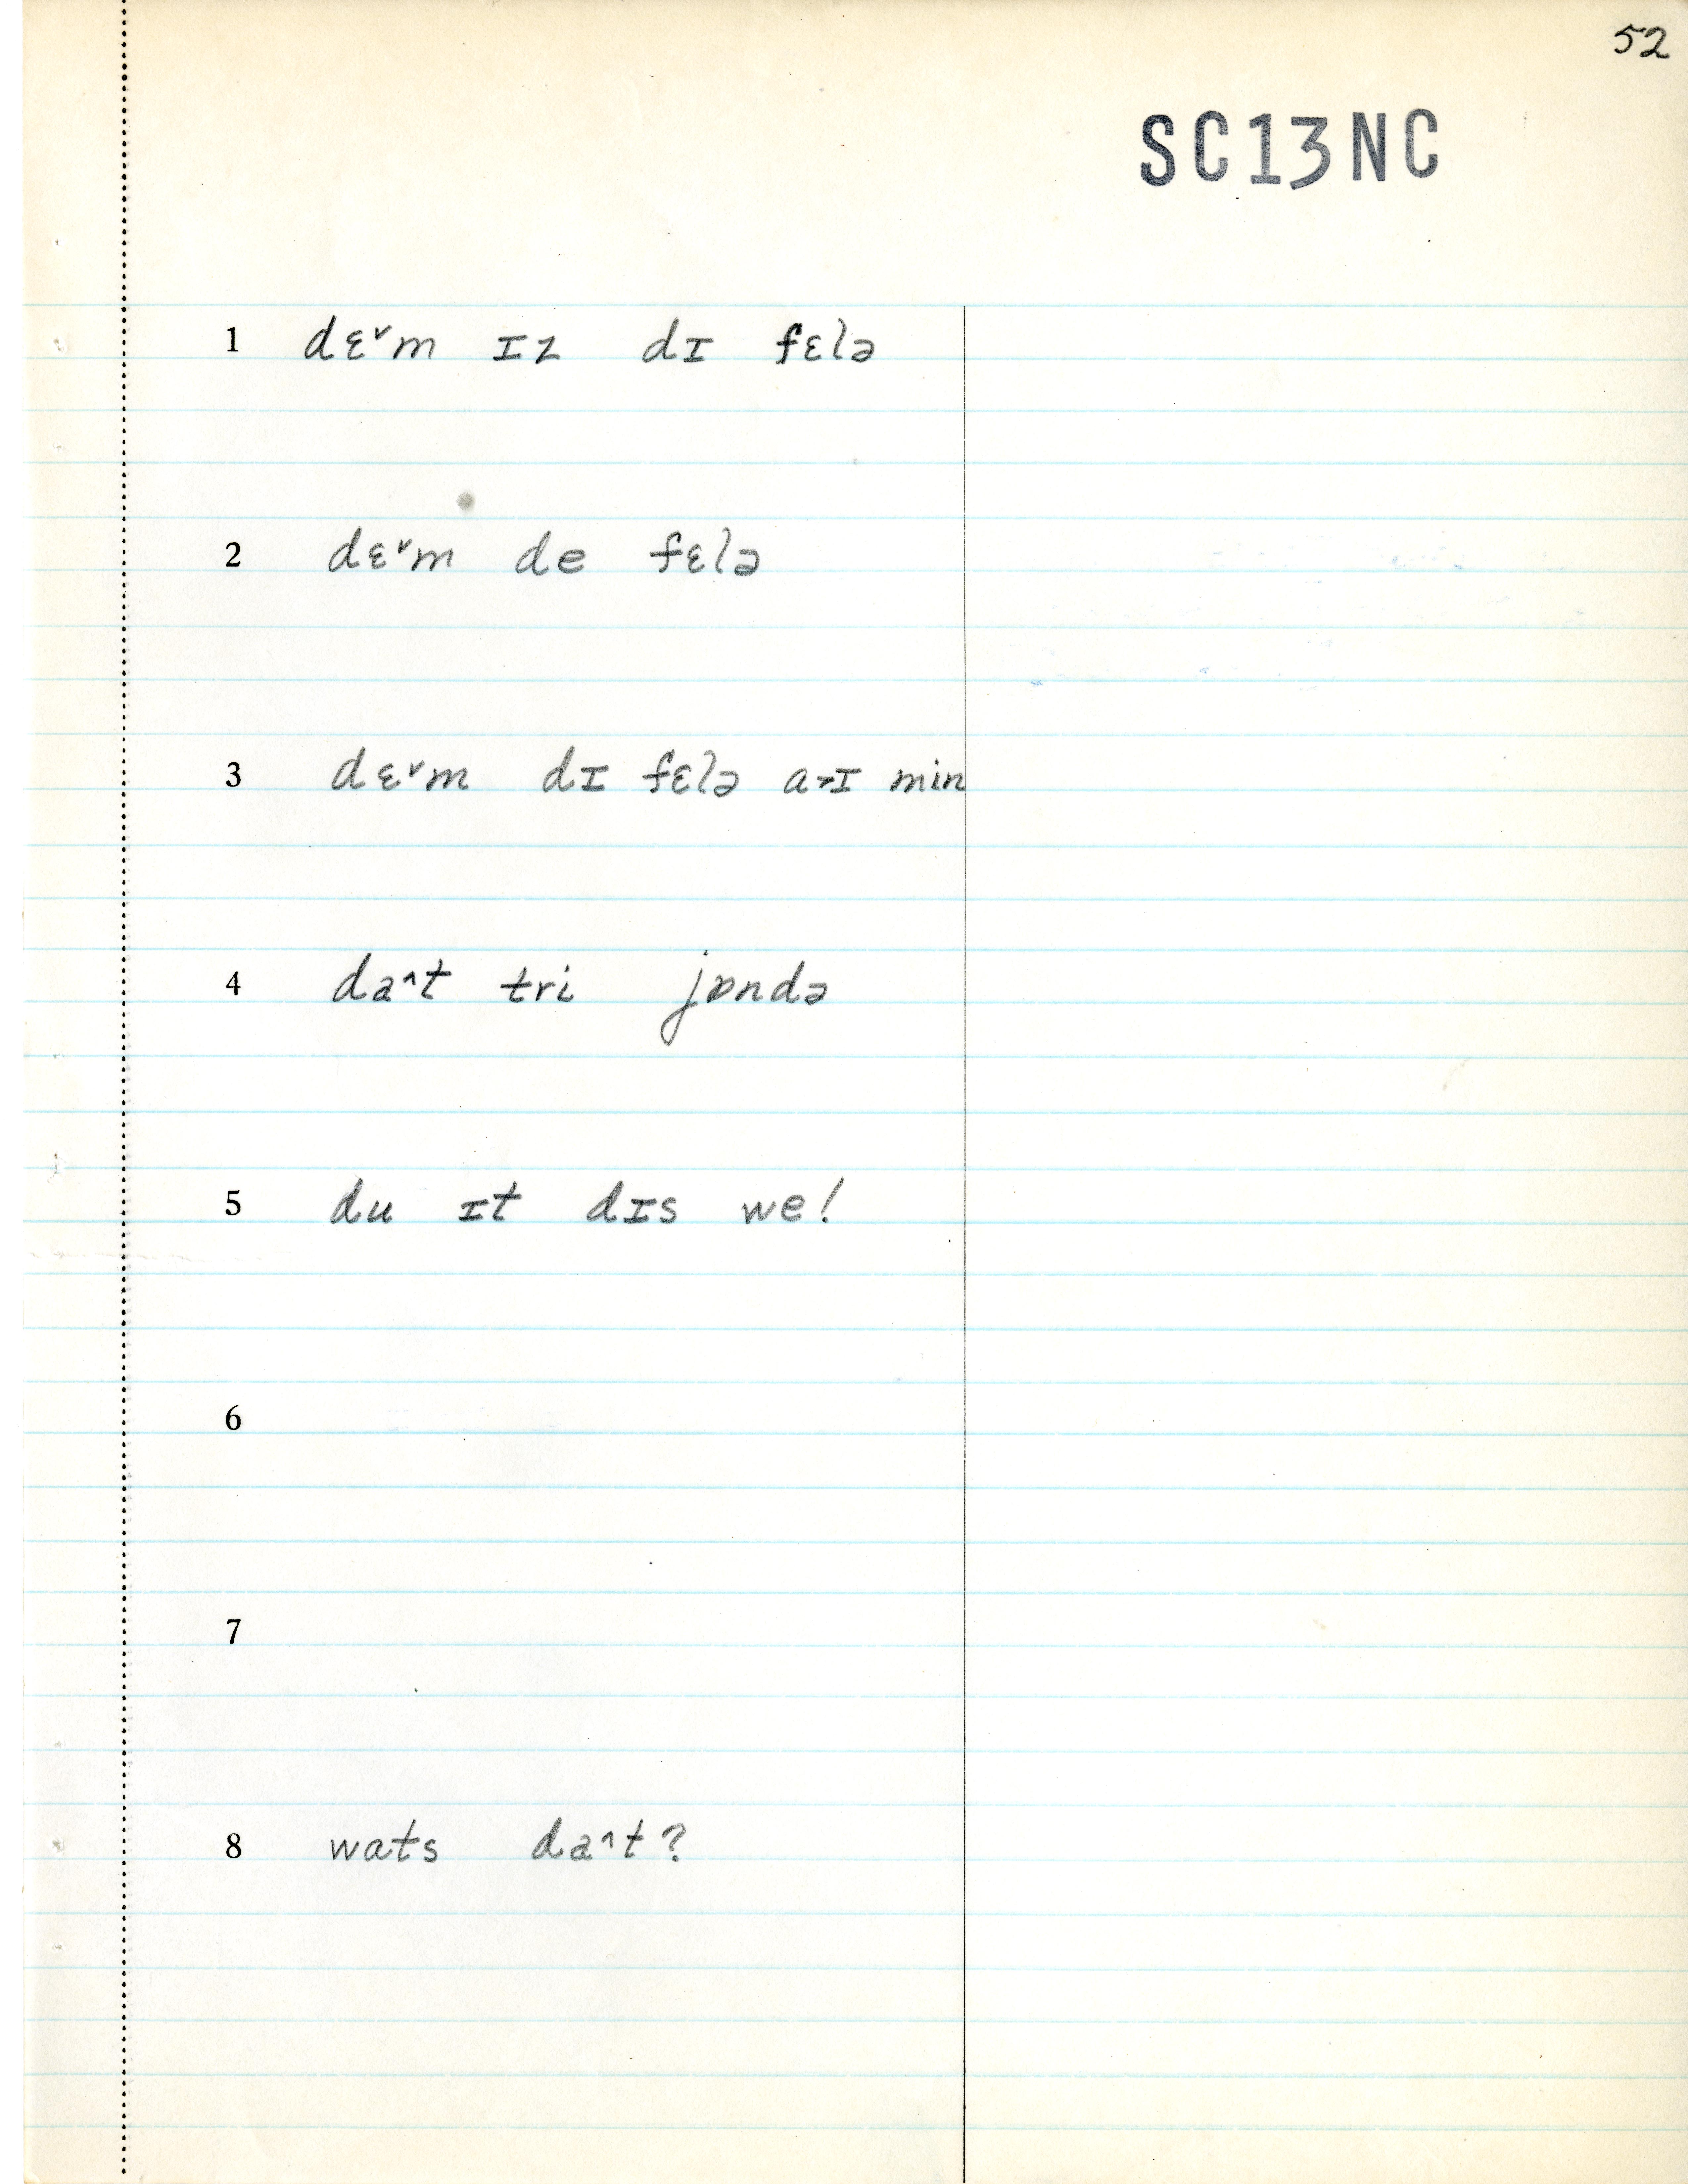 52
SC13NC
1 dɛ˅m ɪz dɪ fɛlə
2 dɛ˅m de fɛlə
3 dɛ˅m dɪ fɛlə a˃ɪ min
4 da˄t tri jɒndə
5 du ɪt dɪs we!
6
7
8 wats da˄t?